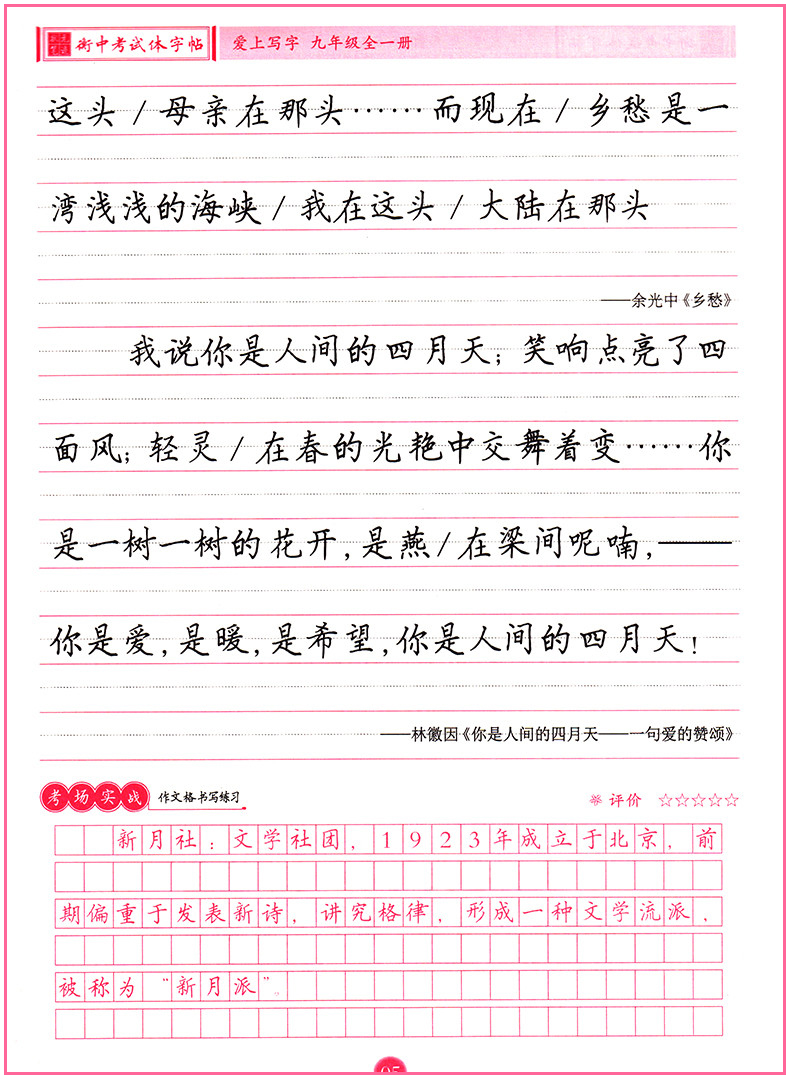 衡中考试体字帖 爱上写字 九年级全一册
这头/母亲在那头……而现在/乡愁是一
湾浅浅的海峡/我在这头/大陆在那头
——余光中《乡愁》
我说你是人间的四月天；笑响点亮了四
面风；轻灵/在春的光艳中交舞着变……你
是一树一树的花开，是燕/在梁间呢喃，——
你是爱，是暖，是希望，你是人间的四月天！
——林徽因《你是人间的四月天——一句爱的赞颂》
考场实战 作文格书写练习 评价 ☆☆☆☆☆
新月社：文学社团，1923年成立于北京，前
期偏重于发表新诗，讲究格律，形成一种文学流派，
被称为“新月派”。
05